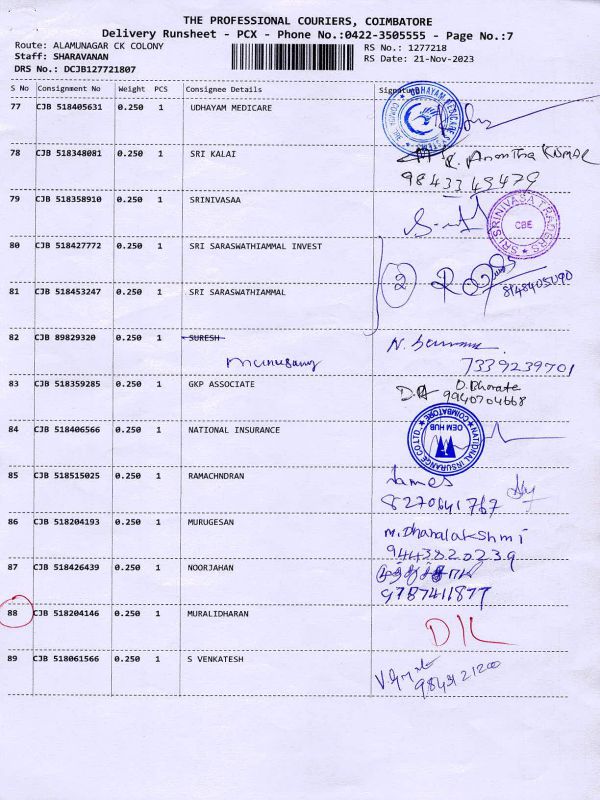 THE PROFESSIONAL COURIERS, COIMBATORE
Delivery Runsheet - PCX - Phone No.:0422-3505555 - Page No.:7
Route: ALAMUNAGAR CK COLONY
RS No.: 1277218
Staff: SHARAVANAN
RS Date: 21-Nov-2023
DRS No.: DCJB127721807
S No Consignment No Weight PCS Consignee Details Signature
77 CJB 518405631 0.250 1 UDHAYAM MEDICARE
UDHAYAM MEDICARE SYSTEMS
78 CJB 518348081 0.250 1 SRI KALAI K. Anantha KUMAR
9843345479
79 CJB 518358910 0.250 1 SRINIVASAA
SRI SRINIVASA TRADERS
CBE
80 CJB 518427772 0.250 1 SRI SARASWATHIAMMAL INVEST
2
8148405090
81 CJB 518453247 0.250 1 SRI SARASWATHIAMMAL
82 CJB 89829320 0.250 1 SURESH
7339239701
83 CJB 518359285 0.250 1 GKP ASSOCIATE D. Bharate
9940704668
84 CJB 518406566 0.250 1 NATIONAL INSURANCE
NATIONAL INSURANCE CO.LTD.
OEM HUB
COIMBATORE
85 CJB 518515025 0.250 1 RAMACHNDRAN James
8270641767
86 CJB 518204193 0.250 1 MURUGESAN M. Dhanalakshmi
9443820239
87 CJB 518426439 0.250 1 NOORJAHAN
9787411877
88 CJB 518204146 0.250 1 MURALIDHARAN D/L
89 CJB 518061566 0.250 1 S VENKATESH